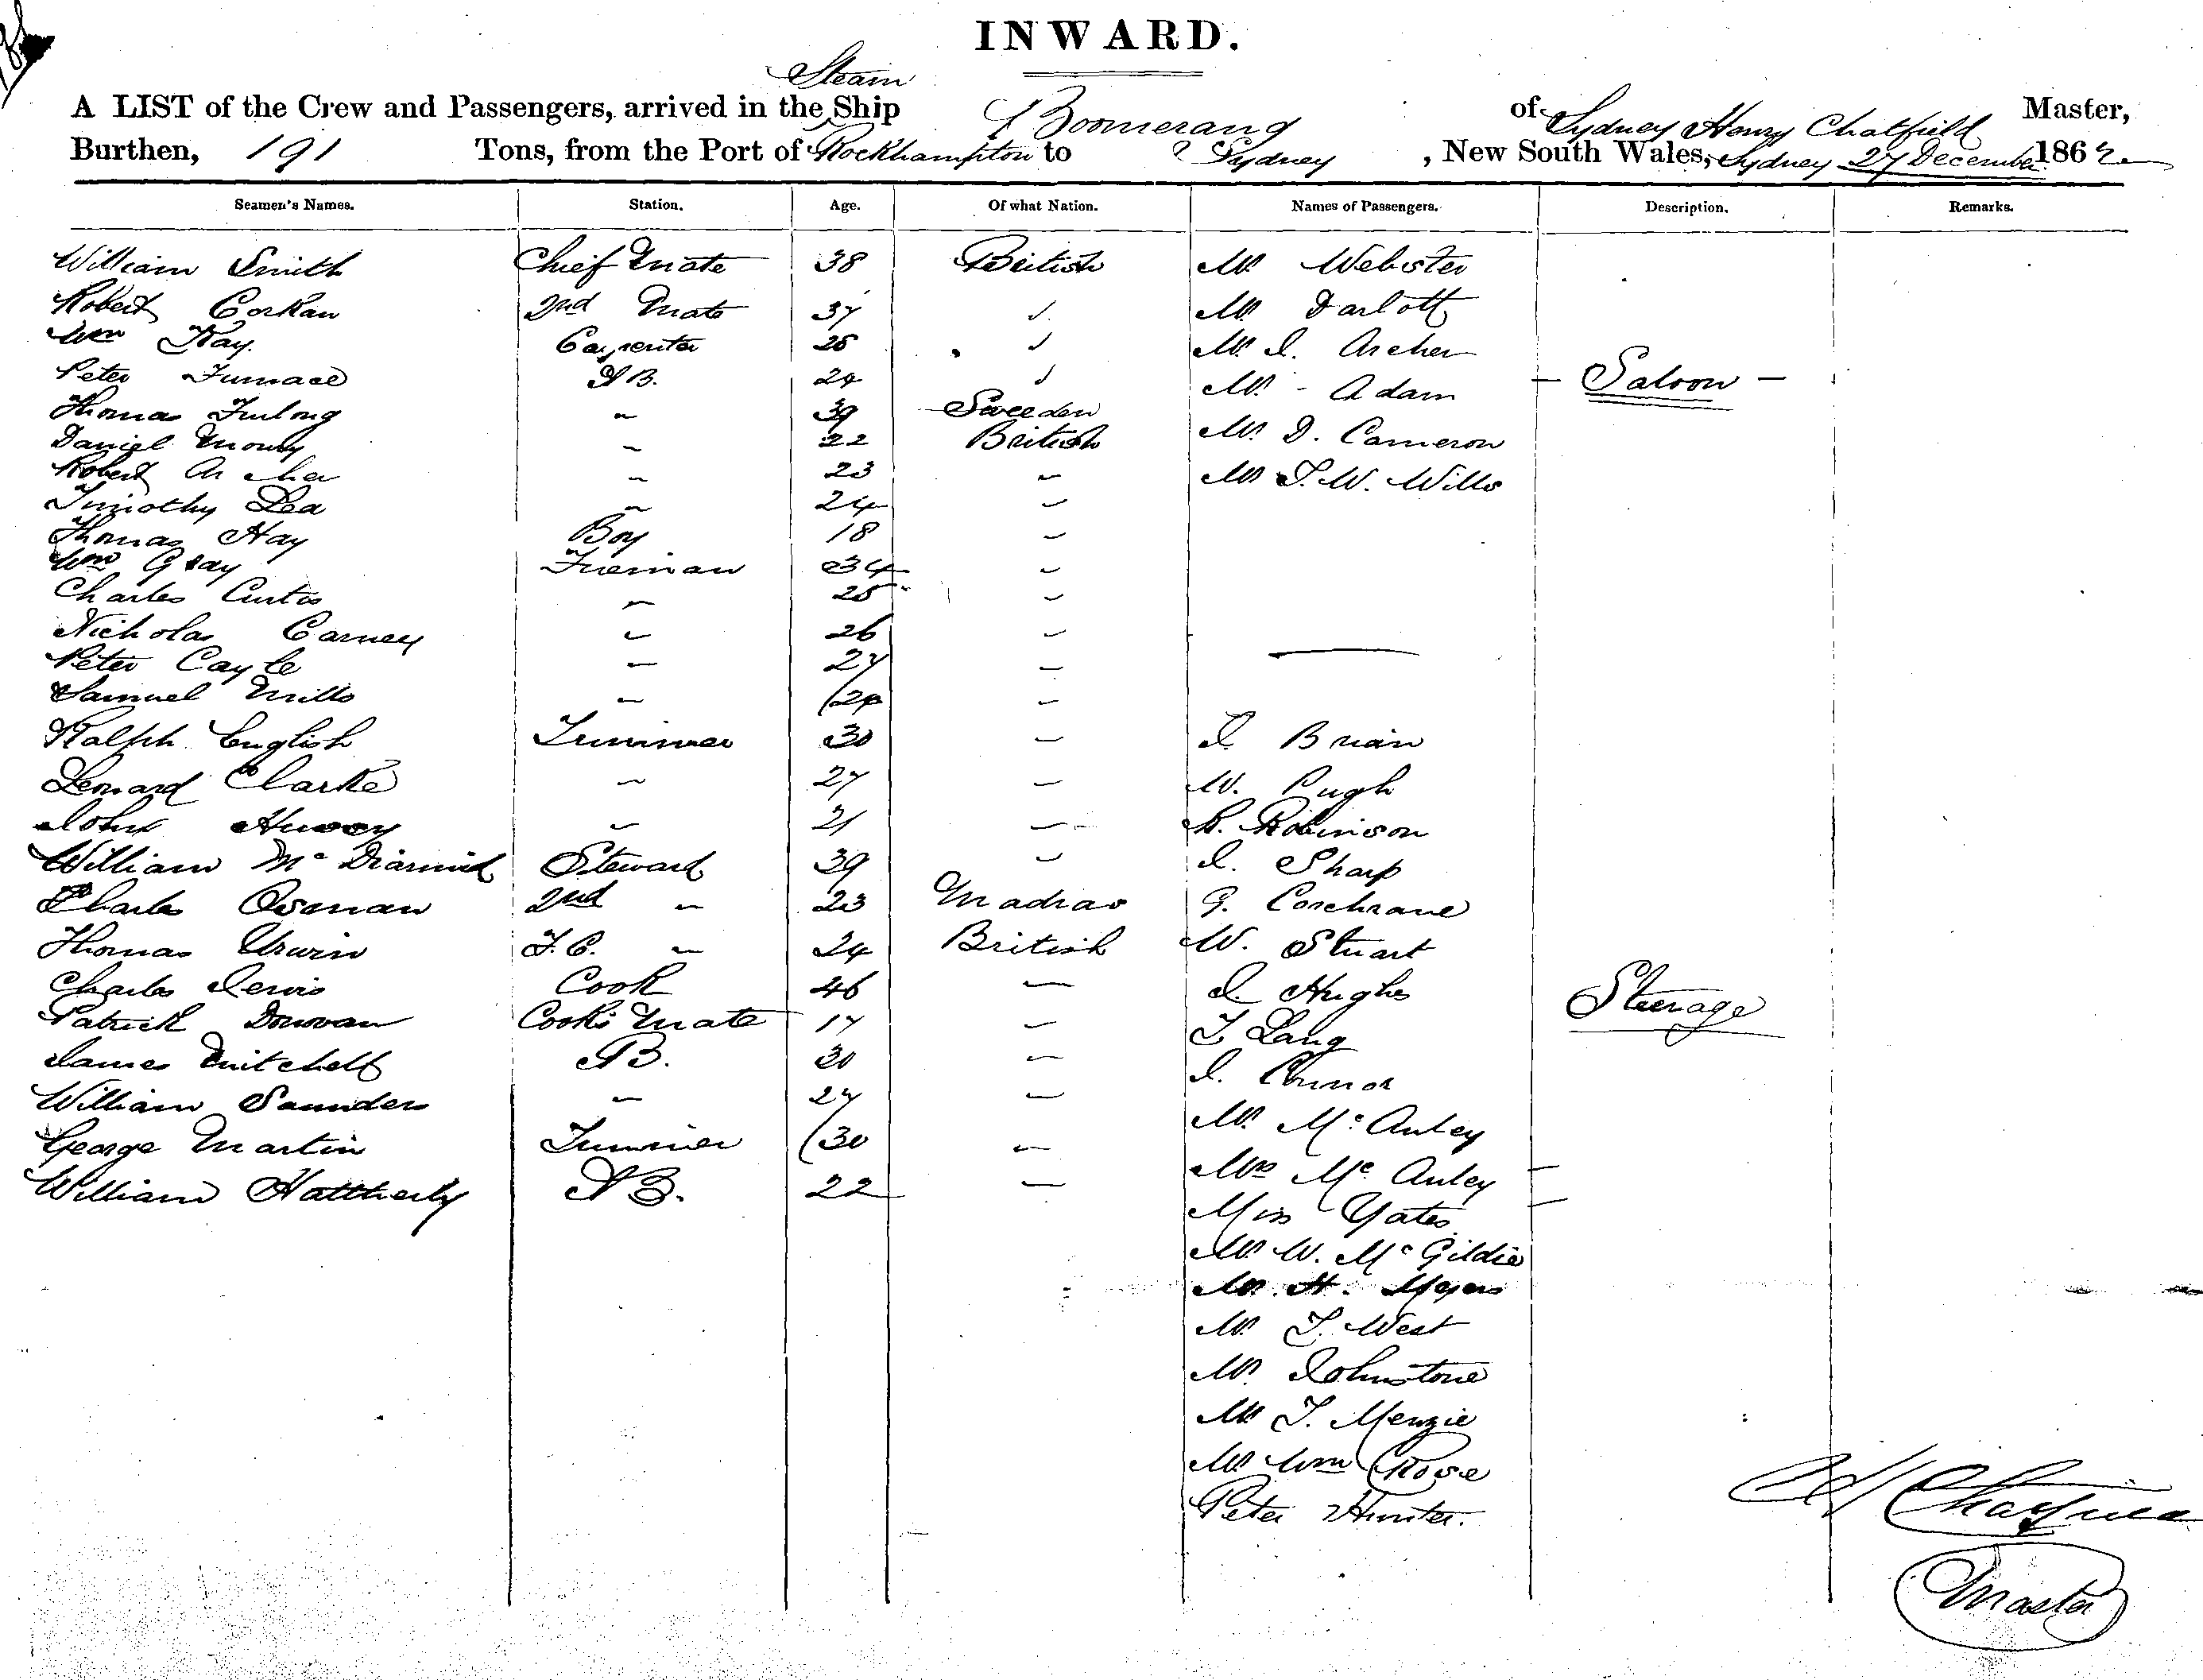 INWARD.
Steam
A LIST of the Crew and Passengers, arrived in the Ship Boomerang of Sydney Henry Chatfield Master,
Burthen, 191 Tons, from the Port of Rockhampton to Sydney, New South Wales, Sydney 27 December 1862
Seamen's Names. Station. Age. Of what Nation. Names of Passengers. Description. Remarks.
William Smith Chief Mate 38 British Mr Webster
Robert Corkan 2nd Mate 37 Mr Darlott
Wm Kay. Carpenter 25 Mr J. Archer
Peter Furnace AB. 24 Mr - Adam - Saloon -
Thomas Furlong 39 Sweeden
Daniel 22 British Mr D. Cameron
Robert Archer 23 Mr T. W. Wills
Timothy Lea 24
Thomas Hay Boy 18
Wm Gray Fireman 34
Charles Curtis 25
Nicholas Carney 26
Peter Cayle 27
Samuel Mills 24
Ralph English Trimmer 30 J Brian
Lenard Clarke 27 W. Pugh
John 21 R. Robinson
William McDiarmid Steward 39 J. Sharp
Charles Osman 2nd 23 Madras G. Corchrane
Thomas Urwin F.C. 24 British W. Stuart
Charles Lewis Cook 46 J. Hughes Steerage
Patrick Donovan Cooks Mate 17 T Lang
James Mitchell AB. 30 J. Connor
William Saunders 27 Mr McAuley
George Martin Trimmer 30 Mrs McAuley
William Hattherly AB. 22 Miss Yates
Mr W. McGildie
Mr H. Meyers
Mr T. West
Mr Johnstone
Mr T. Menzie
Mr Wm Rose
Peter Hunter.
H Chatfield
Master